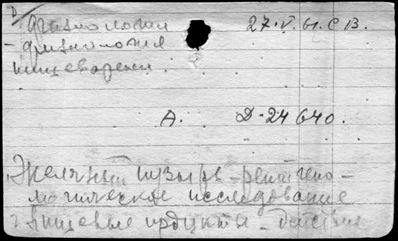 физиология 27.V.61.СВ.
- физиология
пищеварения.
А. Д-24640.
Желчный пузырь - рентгено-
логическое исследование
Пищевые продукты - действие